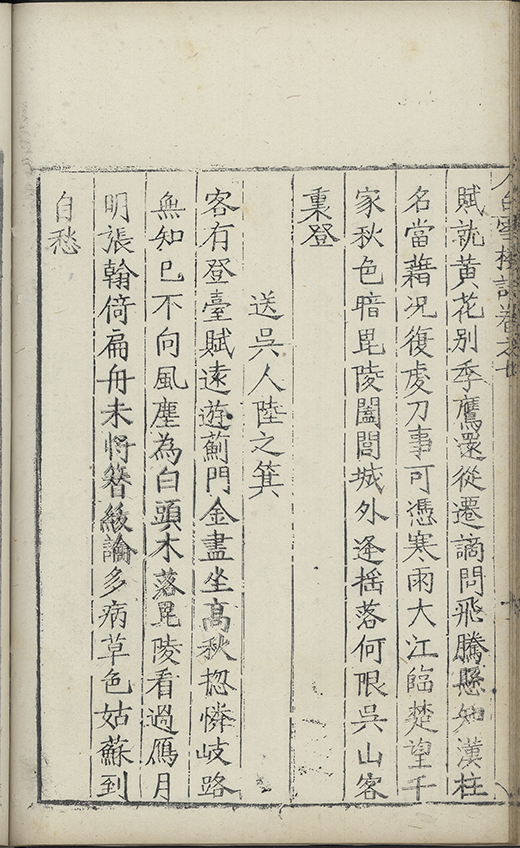 白雲樓詩卷之
賦就黃花別季鷹還從遷謫問飛騰懸知漢柱
名當藉况復虔刀事可憑寒雨大江臨楚望千
家秋色暗毘陵闔閭城外逢揺落何限吳山客
裏登
送吳人陸之箕
客有登臺賦遠遊薊門金盡坐高秋揔憐岐路
無知己不向風塵為白頭木落毘陵看過鴈月
明張翰倚扁舟未將簪綬論多病草色姑蘇到
自愁